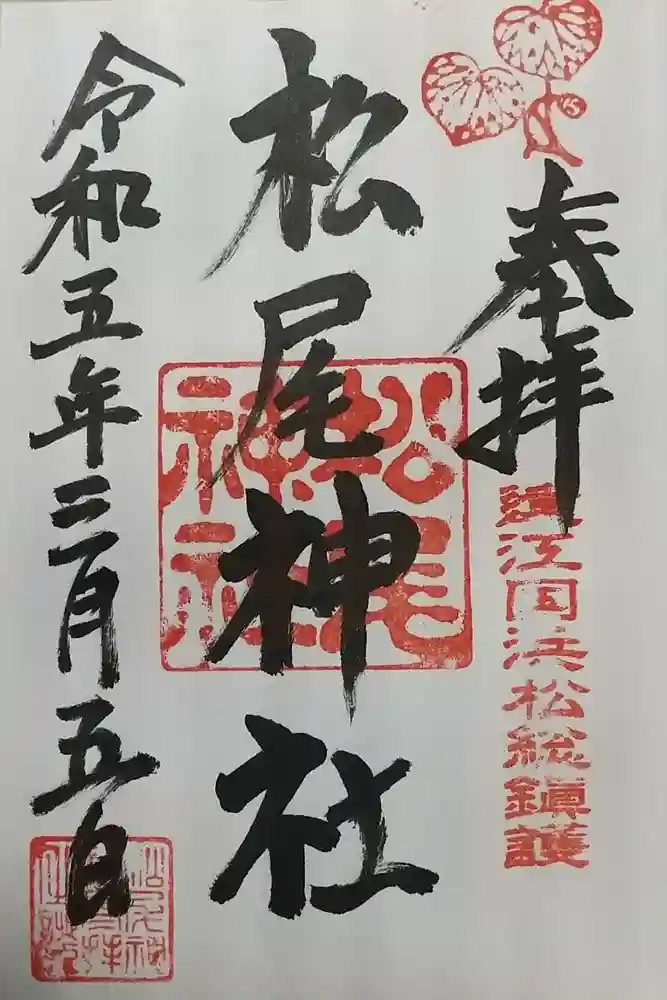 奉拝
遠江国浜松総鎮護
松尾神社
松尾
神社
令和五年三月五日